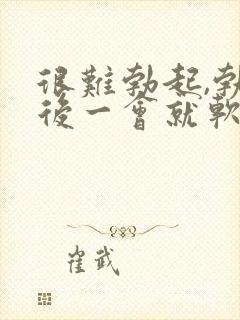 很難勃起,勃
後一會就軟
崔武